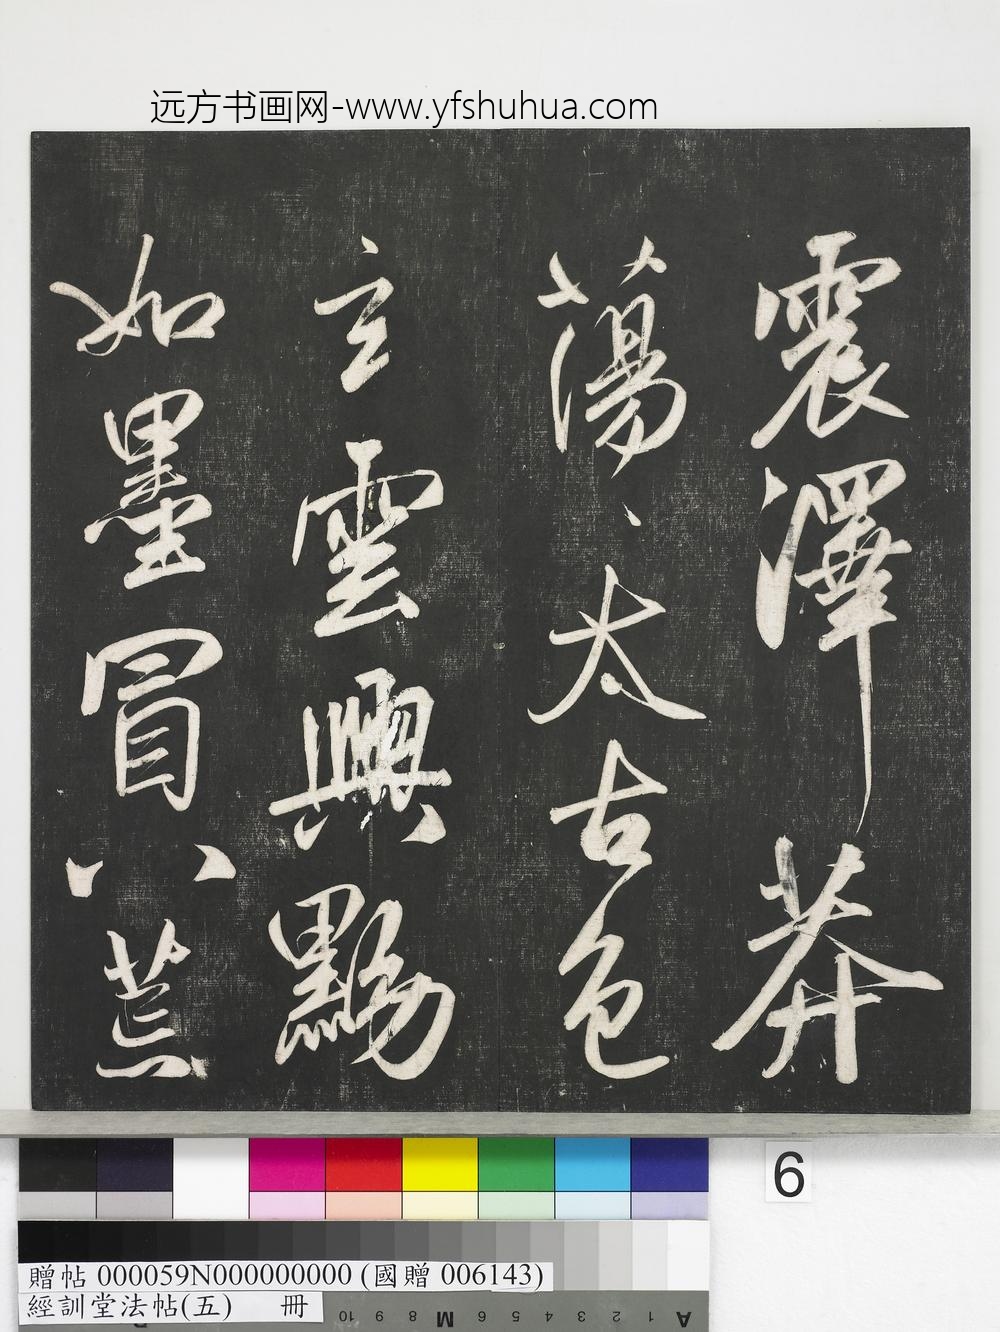 远方书画网-www.yfshuhua.com
震澤莽
蕩、太古色
玄雲興黝
如墨冒八荒
6
贈帖 000059N000000000 (國贈 006143)
經訓堂法帖(五) 冊
A 1 2 3 4 5 6 M 8 9 10